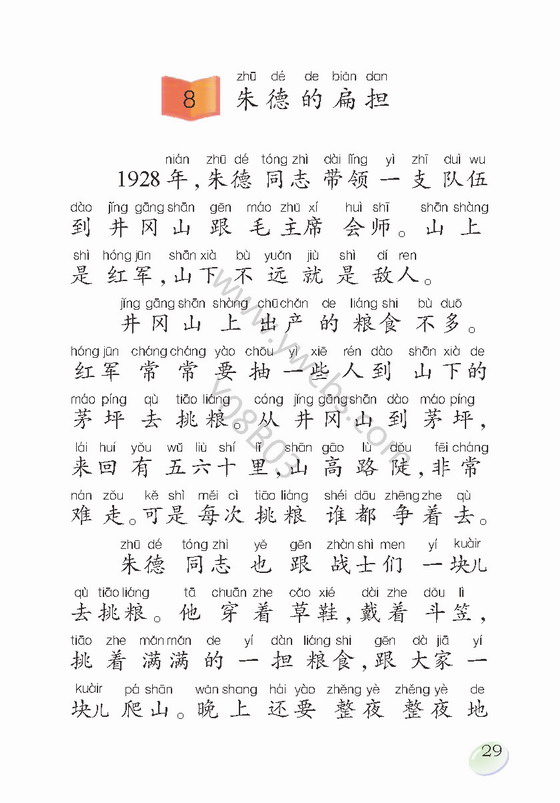 zhū dé de biǎn dan
8 朱德的扁担
nián zhū dé tóng zhì dài lǐng yì zhī duì wu
1928年,朱德同志带领一支队伍
dào jǐng gāng shān gēn máo zhǔ xí huì shī shān shàng
到井冈山跟毛主席会师。山上
shì hóng jūn shān xià bù yuǎn jiù shì dí ren
是红军,山下不远就是敌人。
jǐng gāng shān shàng chū chǎn de liáng shi bù duō
井冈山上出产的粮食不多。
hóng jūn cháng cháng yào chōu yì xiē rén dào shān xià de
红军常常要抽一些人到山下的
máo píng qù tiāo liáng cóng jǐng gāng shān dào máo píng
茅坪去挑粮。从井冈山到茅坪,
lái huí yǒu wǔ liù shí lǐ shān gāo lù dǒu fēi cháng
来回有五六十里,山高路陡,非常
nán zǒu kě shì měi cì tiāo liáng shéi dōu zhēng zhe qù
难走。可是每次挑粮谁都争着去。
zhū dé tóng zhì yě gēn zhàn shì men yí kuàir
朱德同志也跟战士们一块儿
qù tiāo liáng tā chuān zhe cǎo xié dài zhe dǒu lì
去挑粮。他穿着草鞋,戴着斗笠,
tiāo zhe mǎn mǎn de yí dàn liáng shi gēn dà jiā yí
挑着满满的一担粮食,跟大家一
kuàir pá shān wǎn shang hái yào zhěng yè zhěng yè de
块儿爬山。晚上还要整夜整夜地
29
www.ywcbs.com
Y08B03